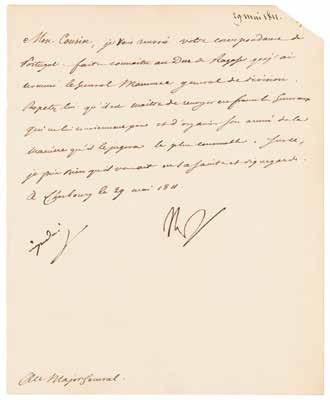 29 mai 1811.
Mon Cousin, je vous renvoie votre correspondance de
Portugal. faites connaître au Duc de Raguse que j'ai
nommé le Général Maucune général de division.
Répétez lui qu'il est maître de renvoyer en france les Généraux
qui ne lui conviennent pas et d'organiser son armée de la
manière qu'il le jugera le plus convenable. Sur ce,
je prie Dieu qu'il vous ait en sa sainte et digne garde.
À Cherbourg le 29 mai 1811
Au Major Général.